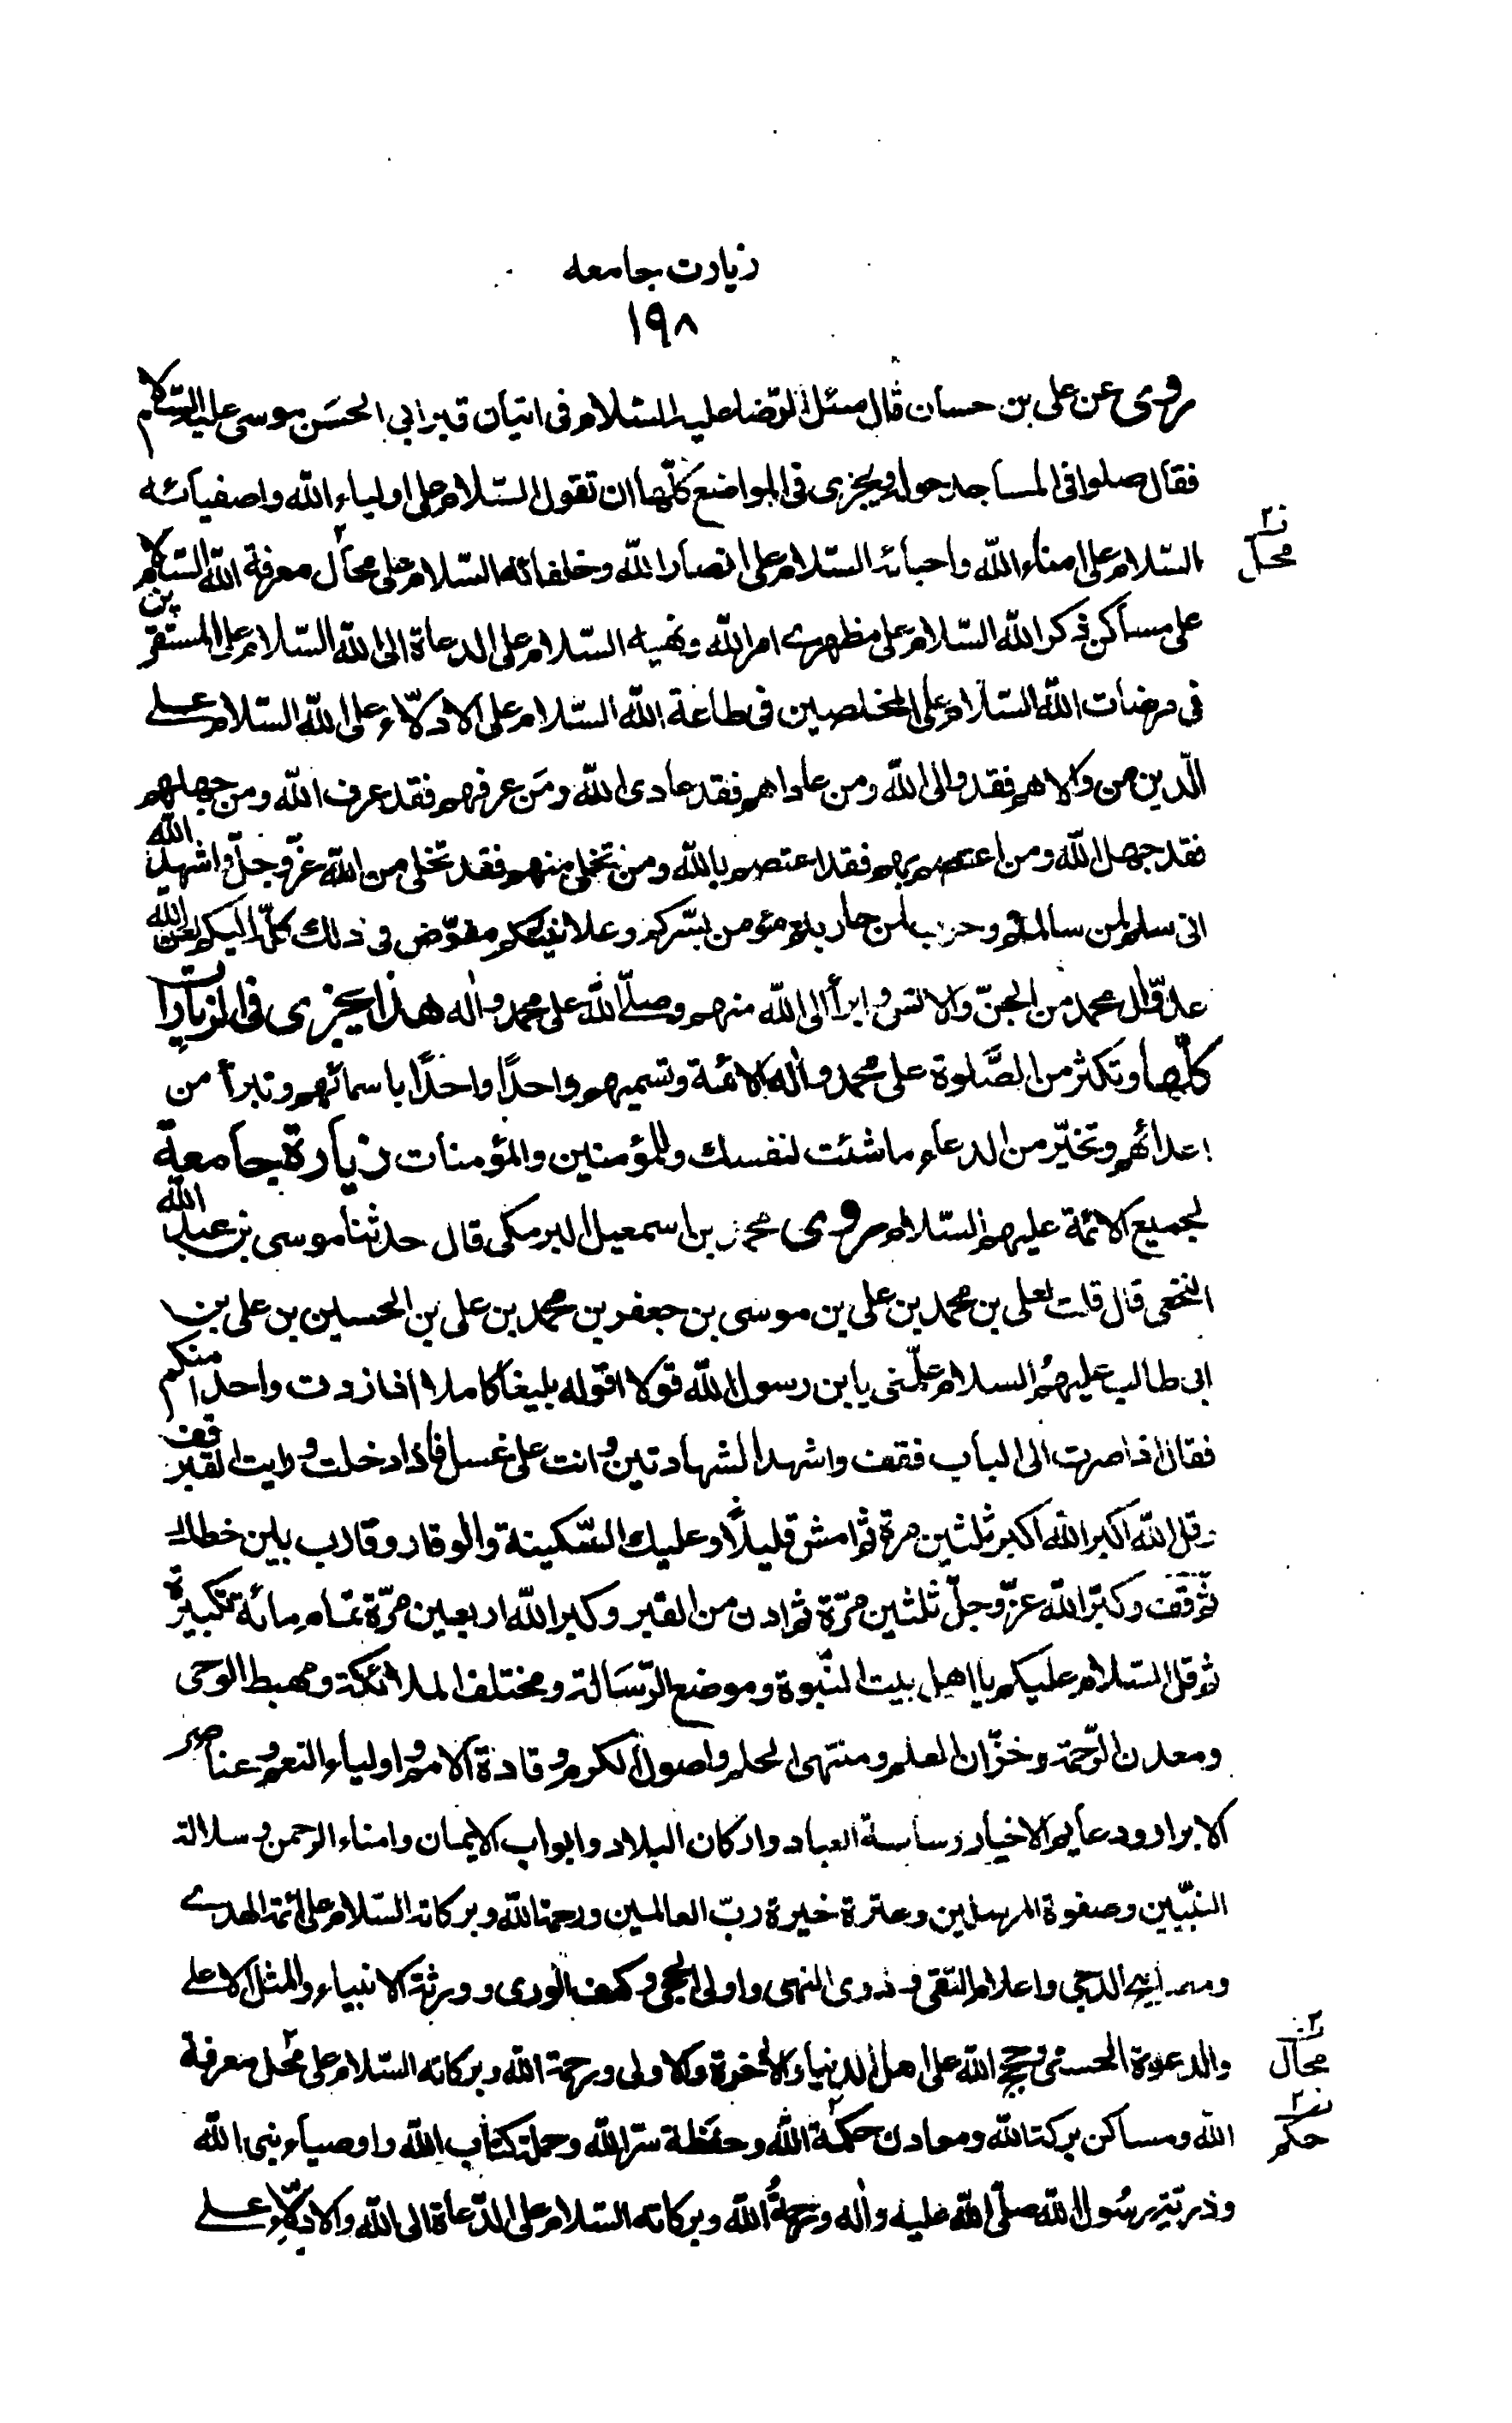 زیارت جامعه
۱۹۸
روی عن علی بن حسان قال سئل الرّضا علیه السّلام فی اتیان قبر ابی الحسَن موسی علیه السّلام
فقال صلوا فی المساجد حوله ویجزی فی المواضع کلّها ان تقول السّلام علی اولیاء الله واصفیائه
السّلام علی امناء الله واحبائه السّلام علی انصار الله وخلفائه السّلام علی محالّ معرفة الله السّلام
علی مساکن ذکر الله السّلام علی مظهری امر الله ونهیه السّلام علی الدعاة الی الله السّلام علی المستقرین
فی مرضات الله السّلام علی المخلصین فی طاعة الله السّلام علی الادلّاء علی الله السّلام علی
الّذین من والاهم فقد والی الله ومن عاداهم فقد عادی الله ومَن عرفهم فقد عرف الله ومن جهلهم
فقد جهل الله ومن اعتصم بهم فقد اعتصم بالله ومن تخلی منهم فقد تخلی من الله عزّ وجلّ واشهد الله
انی سلم لمن سالمکم وحرب لمن حاربکم مؤمن بسّرکم وعلانیتکم مفوّض فی ذلك کلّه الیکم لعن الله
عدوّ ال محمد من الجنّ والانس وابرأ الی الله منهم وصلّی الله علی محمد واله هذا یجزی فی الزیارات
کلّها وتکثر من الصَّلوة علی محمد واله الائمة وتسمیهم واحدًا واحدًا باسمائهم وتبرأ من
اعدائهم وتخیّر من الدعاء ما شئت لنفسك وللمؤمنین والمؤمنات زیارة جامعة
لجمیع الائمة علیهم السّلام روی محمد بن اسمعیل البرمکی قال حدثنا موسی بن عبد الله
النخعی قال قلت لعلی بن محمد بن علی بن موسی بن جعفر بن محمد بن علی بن الحسین بن علی بن
ابی طالب علیهمُ السلام علّمنی یابن رسول الله قولا اقوله بلیغا کاملا اذا زرت واحدا منکم
فقال اذا صرت الی الباب فقف واشهد الشهادتین وانت علی غسل فاذا دخلت ورایت القبر فقف
وقل الله اکبر الله اکبر ثلثین مرة ثم امش قلیلًا وعلیك السّکینة والوقار وقارب بین خطاك
ثمّ قف وکبّر الله عزّ وجلّ ثلثین مرّة ثم ادن من القبر وکبر الله اربعین مرّة تمام مائة تکبیرة
ثم قل السّلام علیکم یا اهل بیت النّبوة وموضع الرّسَالة ومختلف الملائکة ومهبط الوحی
ومعدن الرّحمة وخزّان العلم ومنتهی الحلم واصول الکرم وقادة الامم واولیاء النعم وعناصر
الابرار ودعایم الاخیار وساسة العباد وارکان البلاد وابواب الایمان وامناء الرحمن وسلالة
النبّیین وصفوة المرسلین وعترة خیرة ربّ العالمین ورحمة الله وبرکاته السّلام علی ائمة الهدی
ومصابیح الدجی واعلام التقی وذوی النهی واولی الحجی وکهف الوری وورثة الانبیاء والمثل الاعلی
والدعوة الحسنی وحجج الله علی اهل الدنیا والاخرة والاولی ورحمة الله وبرکاته السّلام علی محل معرفة
الله ومساکن برکة الله ومعادن حکمة الله وحفَظة سرّ الله وحملة کتاب الله واوصیاء نبی الله
وذریّة رسُول الله صلّی الله علیه واله ورحمةُ الله وبرکاته السّلام علی الدّعاة الی الله والادلّاء علی
محل
محال
حکم